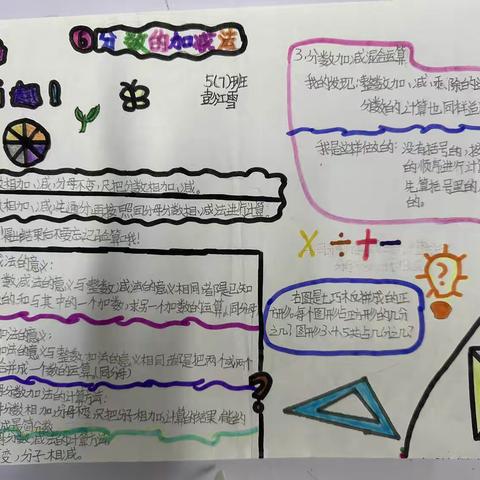 ⑥分数的加减法
5(7)班
彭江雪
数相加、减,分母不变,只把分数相加、减。
数相加、减,先通分,再按照同分母分数相加、减法进行计算。
得出结果后不要忘记验算哦!
减法的意义:
数减法的意义与整数减法的意义相同,都是已知
的和与其中的一个加数,求另一个加数的运算。(同分母)
加法的意义:
加法的意义与整数加法的意义相同,都是把两个或两个
合并成一个数的运算。(同分母)
分数加法的计算方法:
分数相加,分母不变,只把分子相加,计算的结果,能约
成最简分数。
分数减法的计算方法:
变,分子相减。
3.分数加、减混合运算
我的发现:整数加、减、乘、除的
分数的计算也同样适
我是这样做的:没有括号的,按
的顺序进行计
先算括号里的
的。
×÷+-
?
右图是七巧板拼成的正
方形,每个图形占正方形的几分
之几?图形3、4、5共占几分之几?
?